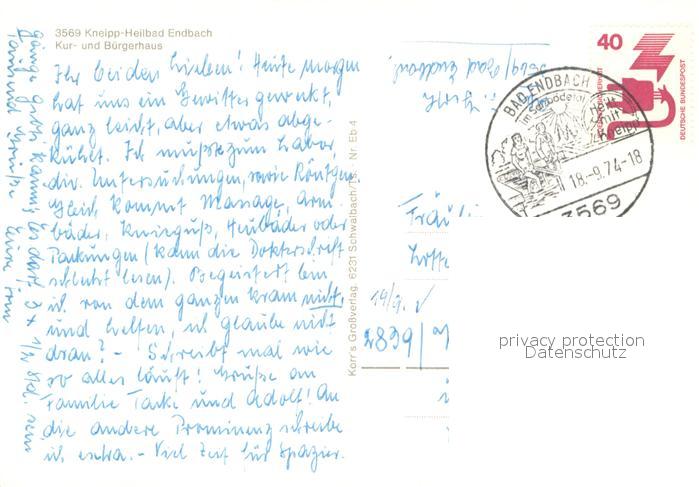 3569 Kneipp-Heilbad Endbach
Kur- und Bürgerhaus
Ihr beiden Lieben! Heute morgen
hat uns ein Gewitter geweckt,
ganz leicht, aber etwas abge-
kühlt. Ich mußte zum Labor,
div. Untersuchungen, sowie Röntgen
Gleich kommt Massage, Arm-
bäder, Knieguß, Heubäder oder
Packungen (kann die Doktorschrift
schlecht lesen). Begeistert bin
ich von dem ganzen Kram nicht,
und helfen, ich glaube nicht
dran? - Schreibt mal wie
so alles läuft! Grüße an
Familie Tacke und Adolf! An
die andere Prominenz schreibe
ich extra. - Viel Zeit für Spazier-
gänge gibts kaum, es darf 3 x 1/2 Std. sein
Tausend Grüße Eure
Korr's Großverlag, 6231 Schwalbach/Ts. Nr. Eb 4
3569 Bad Endbach
40
DEUTSCHE BUNDESPOST
BAD ENDBACH
Fit
mit
Kneipp
18.-9.74-18
3569
Fräul
Lotte
19/9.
privacy protection
Datenschutz